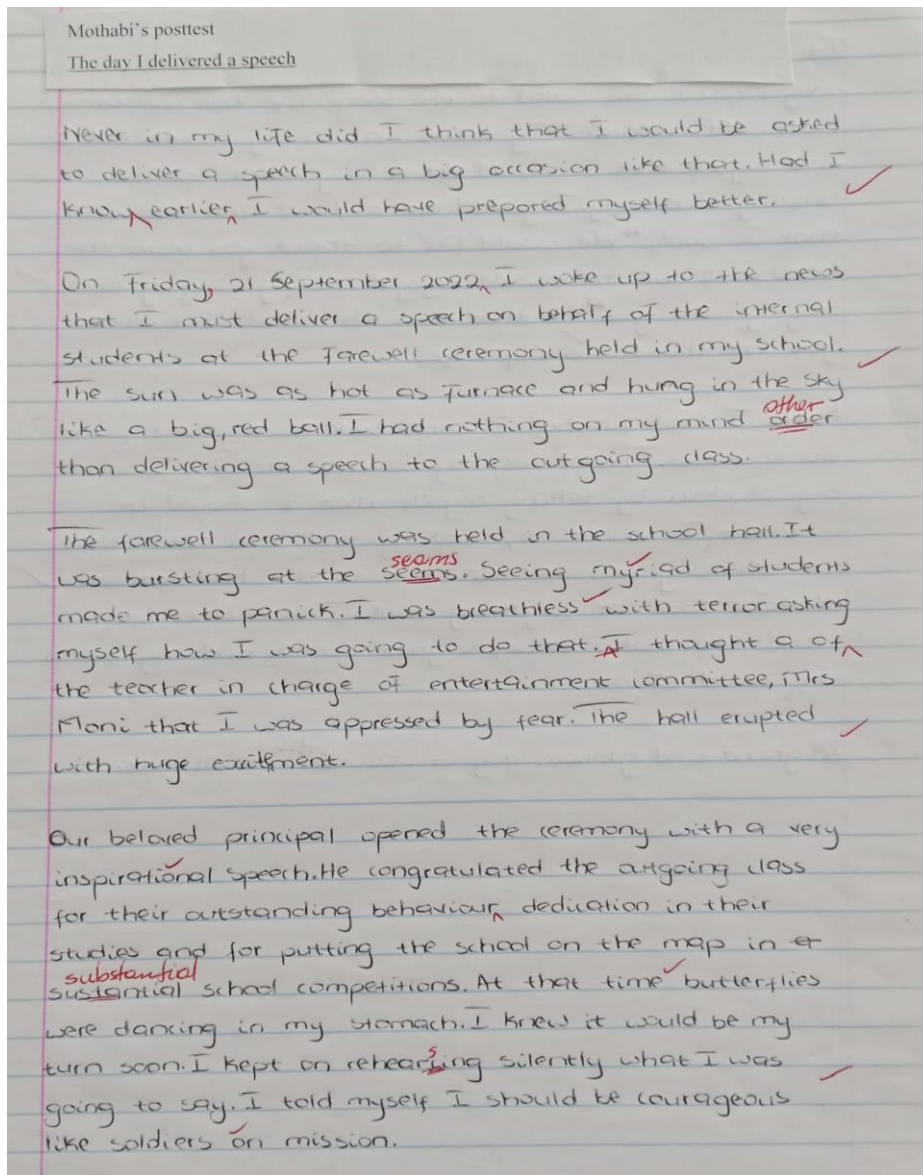 Mothabi's posttest
The day I delivered a speech
Never in my life did I think that I would be asked
to deliver a speech in a big occasion like that. Had I
know earlier I would have prepared myself better.
On Friday, 21 September 2022 I woke up to the news
that I must deliver a speech on behalf of the internal
students at the farewell ceremony held in my school.
The sun was as hot as furnace and hung in the sky
other
like a big, red ball. I had nothing on my mind order
than delivering a speech to the outgoing class.
The farewell ceremony was held in the school hall. It
seams
was bursting at the seems. Seeing myriad of students
made me to panick. I was breathless with terror asking
myself how I was going to do that. I thought a of
the teacher in charge of entertainment committee, Mrs
Moni that I was appressed by fear. The hall erupted
with huge excitement.
Our beloved principal opened the ceremony with a very
inspirational speech. He congratulated the outgoing class
for their outstanding behaviour dedication in their
studies and for putting the school on the map in
substantial
sustantial school competitions. At that time butterflies
were dancing in my stomach. I knew it would be my
s
turn soon. I kept on rehearing silently what I was
going to say. I told myself I should be courageous
like soldiers on mission.